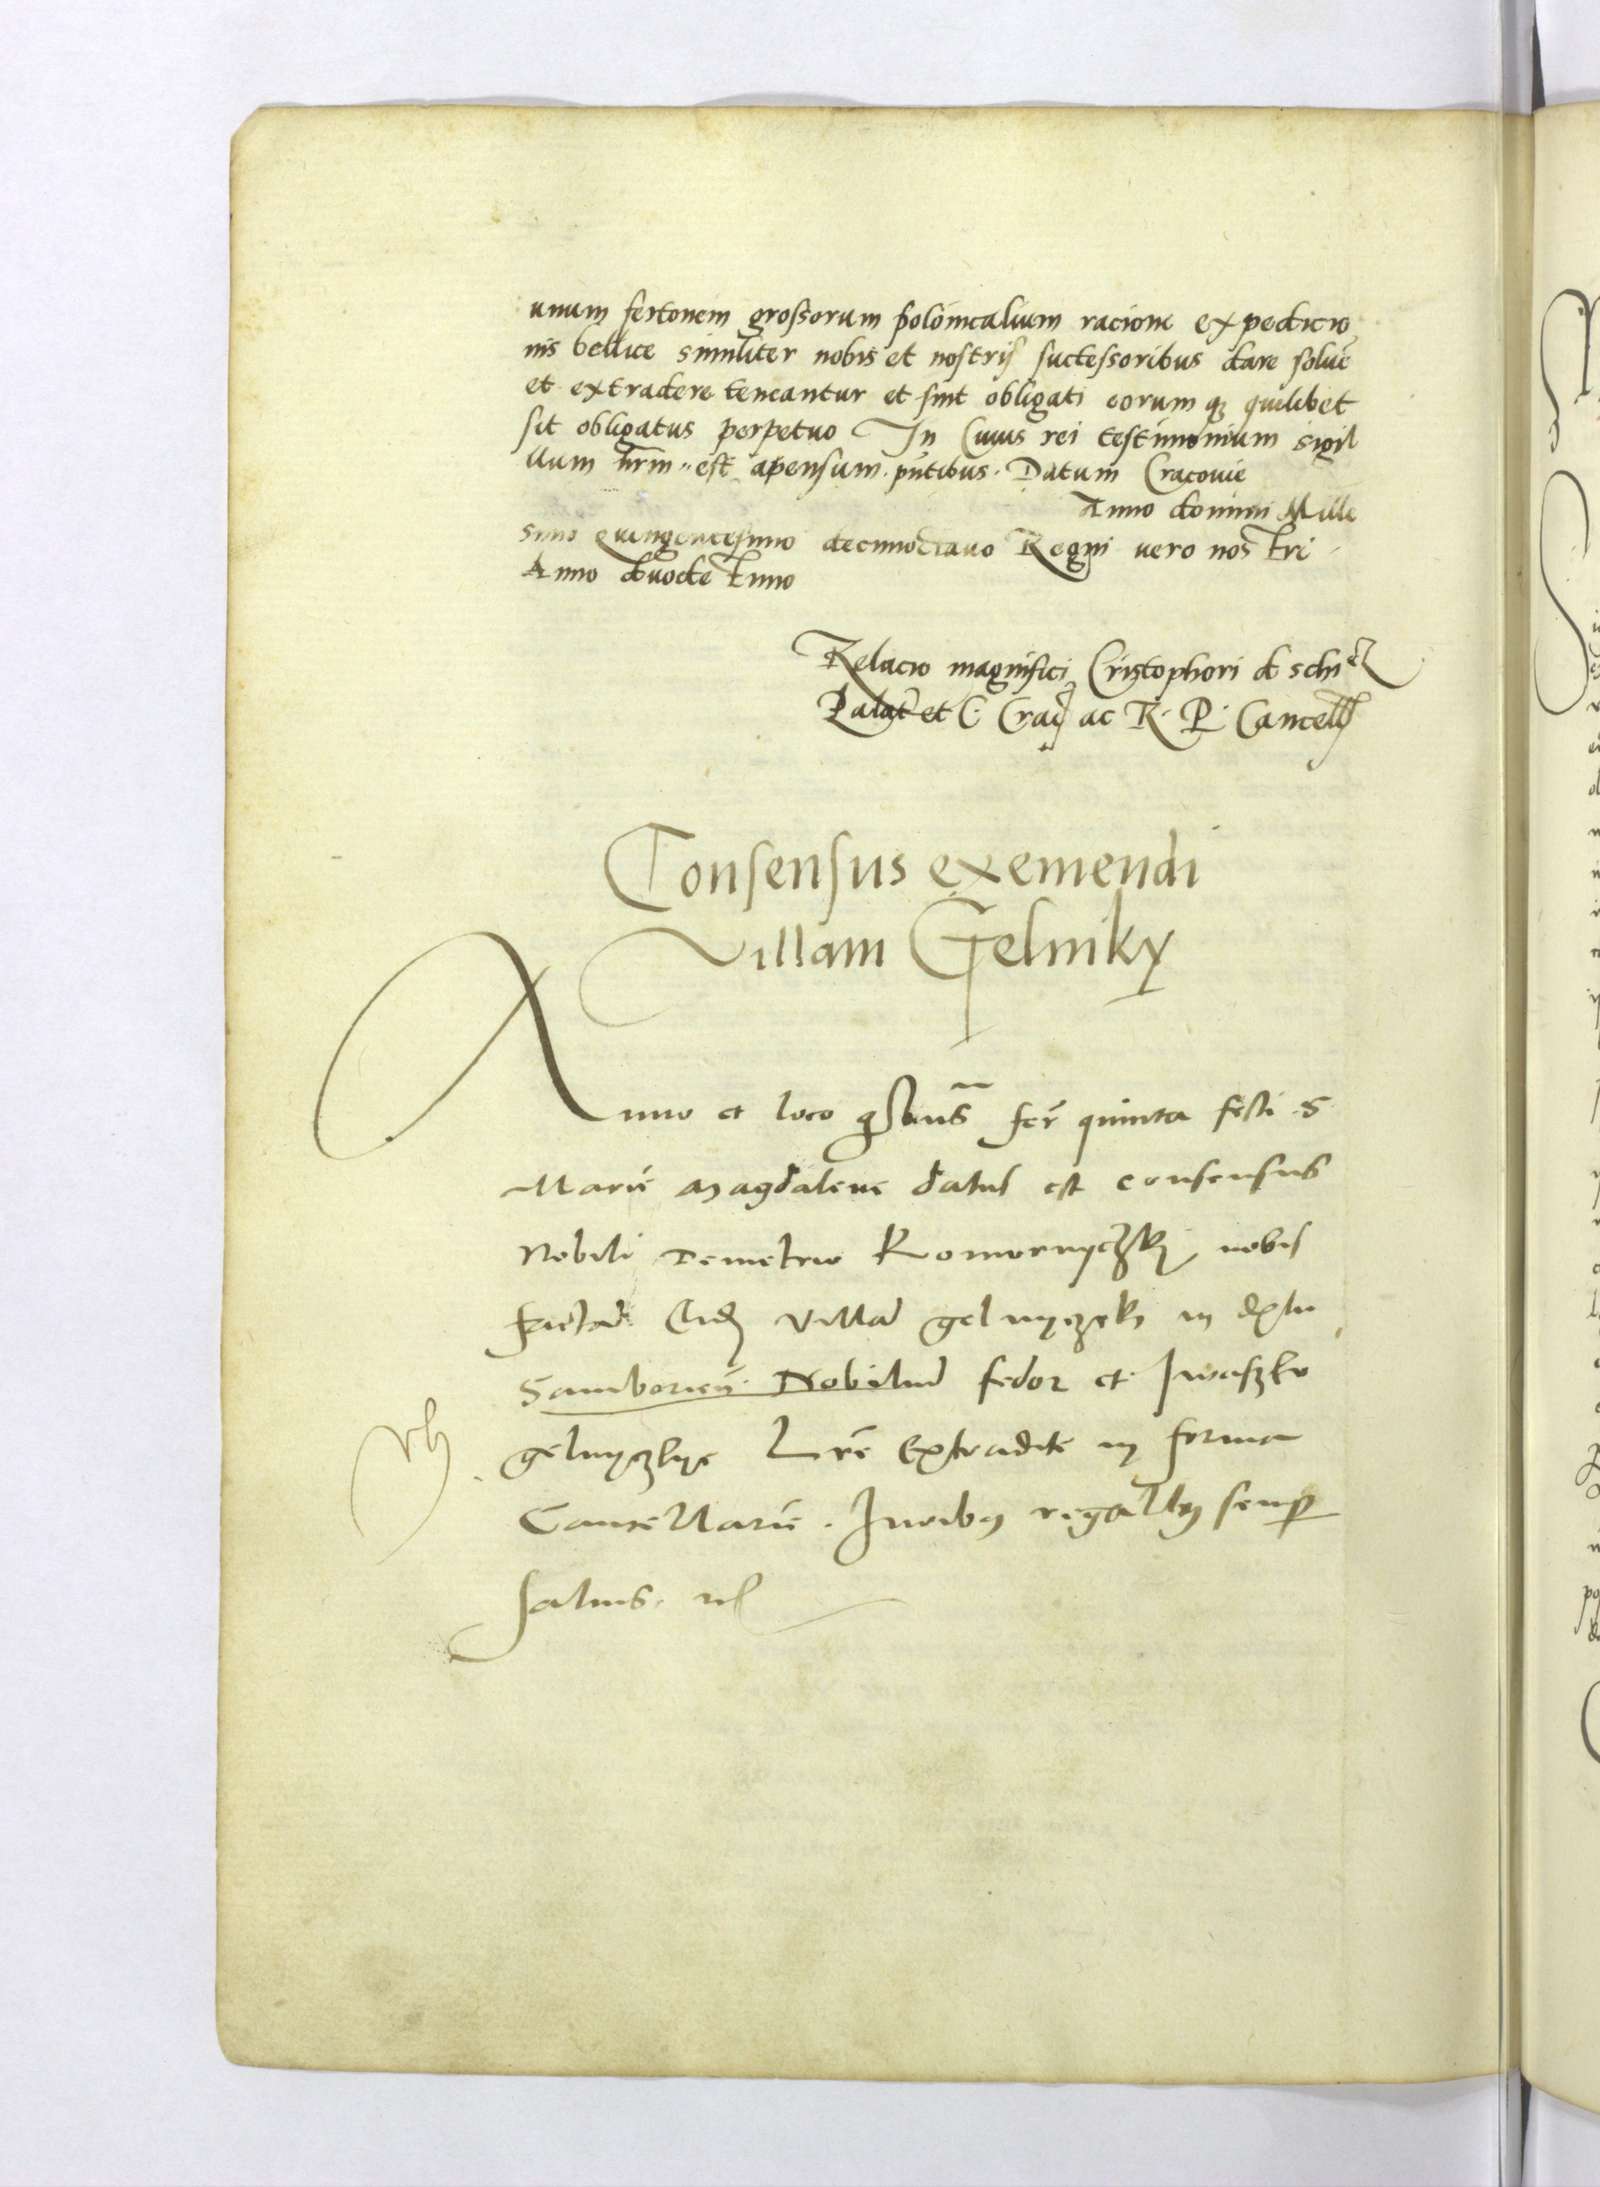 unum fertonem grossorum polonicalium racione expedicio
nis bellice similiter nobis et nostris successoribus dare soluē
et extradere teneantur et sint obligati eorum qꝫ quilibet
sit obligatus perpetuo In Cuius rei testimonium sigil
llum nr̄m est apensum pn̄tibus. Datum Cracovie
Anno domini Mille
simo quingentesimo decimoctavo Regni vero nostri
Anno duodetimo
Relacio magnifici Cristophori de schi
Palat et C. Crac ac R. P. Cancell
Consensus exemendi
villam Gelniky
Anno et loco fer quinta festi S
Marie Magdalene datus est consensus
Nobili Demetrio Komornyczky nobis
villam gelnyczek in
Samborien. Nobilium fedor et Iwaszko
gelnyczkye Lr̄e Extradite in forma
Cancellarie. Iuribus regalibus semp
salvis.